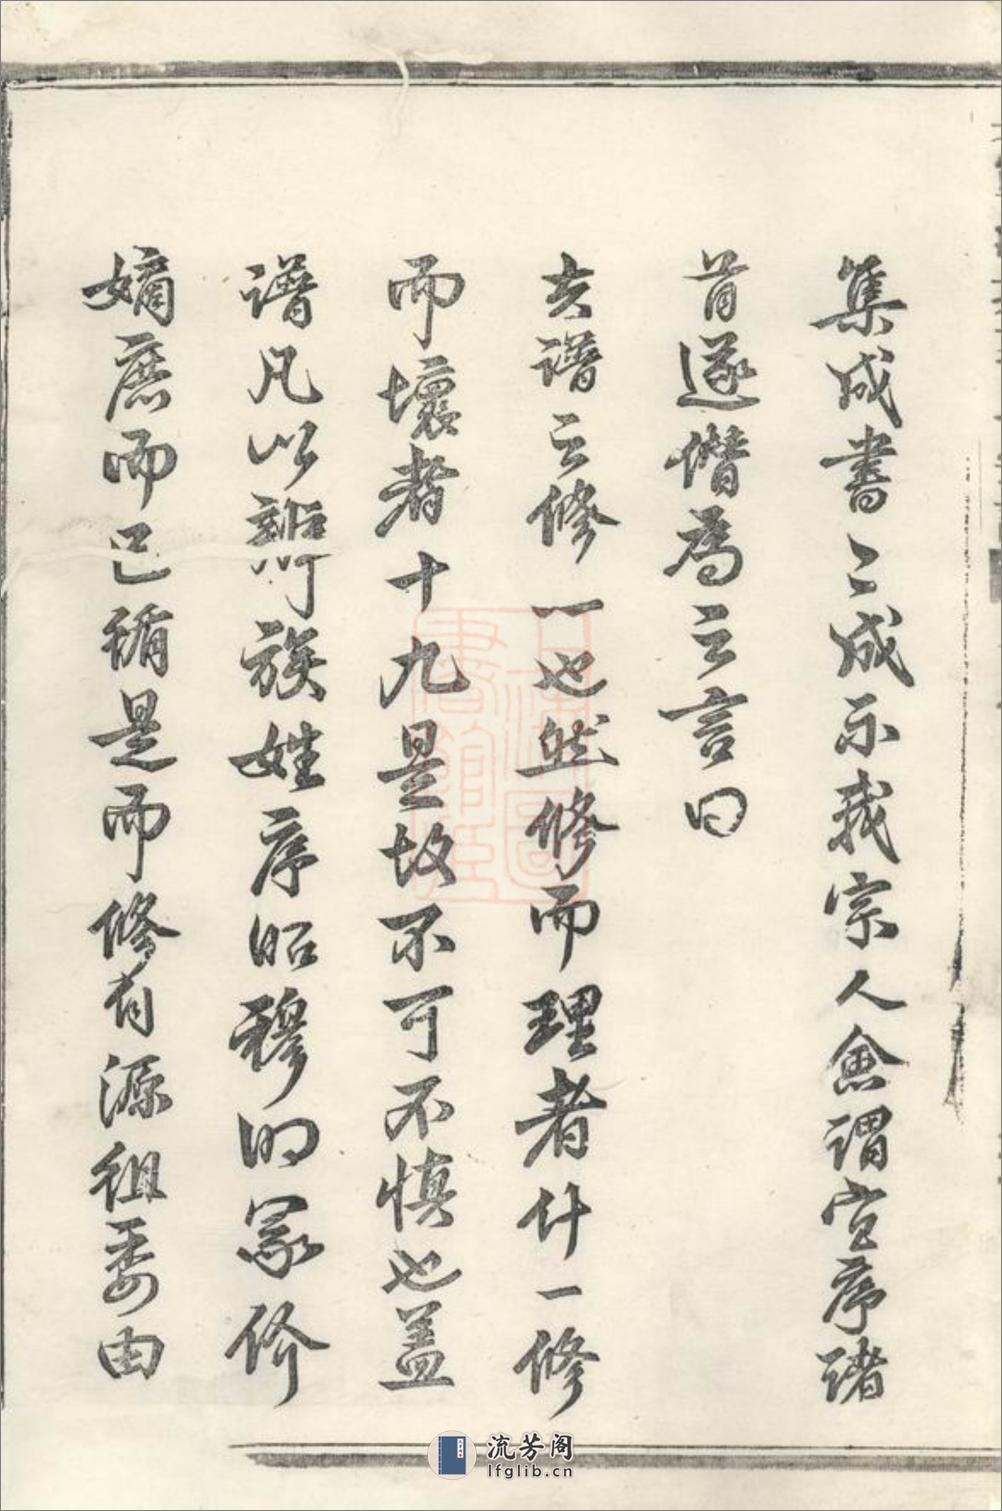 集成書〻成示我宗人僉謂宜序諸
首遂僭為之言曰
夫譜之修一也然修而理者什一修
而壞者十九是故不可不慎也蓋
譜凡以辨族姓序昭穆明冢介
嫡庶而已循是而修有源徂委由
流芳阁
lfglib.cn